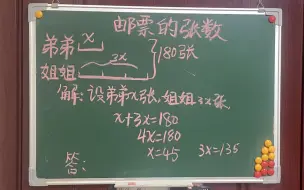 邮票的张数
弟弟 x
姐姐 3x 180张
解:设弟弟x张,姐姐3x张
x+3x=180
4x=180
x=45 3x=135
答: